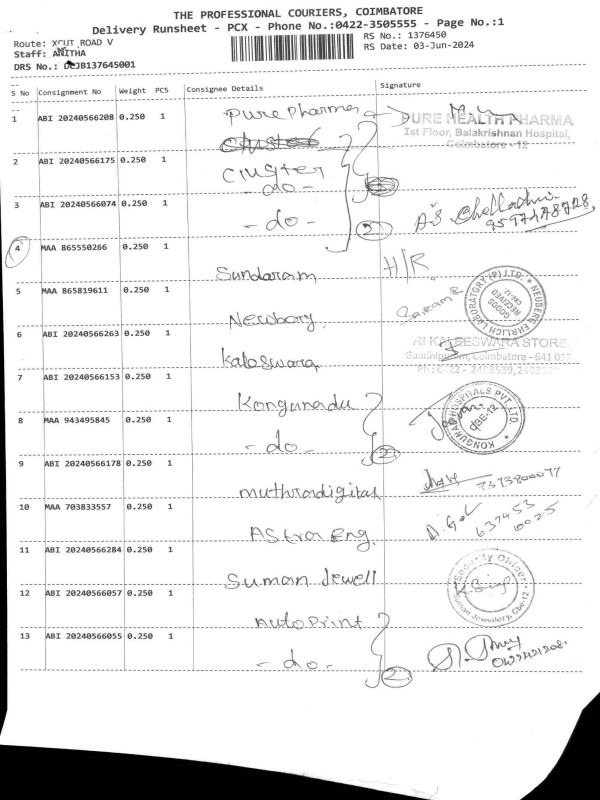 THE PROFESSIONAL COURIERS, COIMBATORE
Delivery Runsheet - PCX - Phone No.:0422-3505555 - Page No.:1
Route: XCUT ROAD V
RS No.: 1376450
Staff: ANITHA
RS Date: 03-Jun-2024
DRS No.: DCJB137645001
S No Consignment No Weight PCS Consignee Details Signature
1 ABI 20240566208 0.250 1 Pure Pharma
PURE HEALTH PHARMA
Ist Floor, Balakrishnan Hospital,
Coimbatore - 12
Cluster
2 ABI 20240566175 0.250 1 Cluster
- do -
3 ABI 20240566074 0.250 1 - do - 3
4 MAA 865550266 0.250 1 Sundaram H/R
5 MAA 865819611 0.250 1 Newborg
NEUBERG EHRLICH LABORATORY (P) LTD.
GOODS RECEIVED
CBE-12
6 ABI 20240566263 0.250 1 Kaleswara
RI KALEESWARA STORE
Gandhipuram, Coimbatore - 641 012
7 ABI 20240566153 0.250 1 Kongunadu
8 MAA 943495845 0.250 1 - do - 2
KONGUNAD HOSPITALS PVT. LTD.
CBE-12
9 ABI 20240566178 0.250 1 muthradigital 7373800077
10 MAA 703833557 0.250 1 Astra Eng. 637453
6025
11 ABI 20240566284 0.250 1 Suman Jewell
Security Officer
Suman Jewellery, Cbe-12
12 ABI 20240566057 0.250 1 Auto Print
13 ABI 20240566055 0.250 1 - do - 2